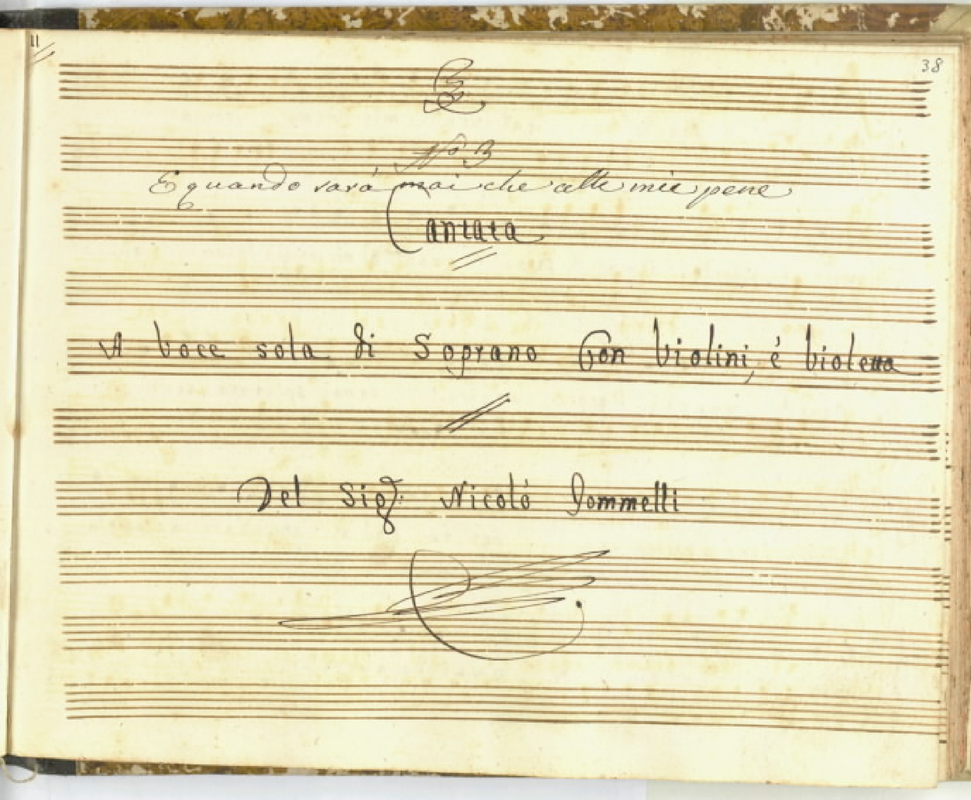 11
38
No. 3
E quando sarà mai che alle mie pene
Cantata
A Voce sola di Soprano Con Violini, è Violetta
Del Sigr. Nicolò Jommelli